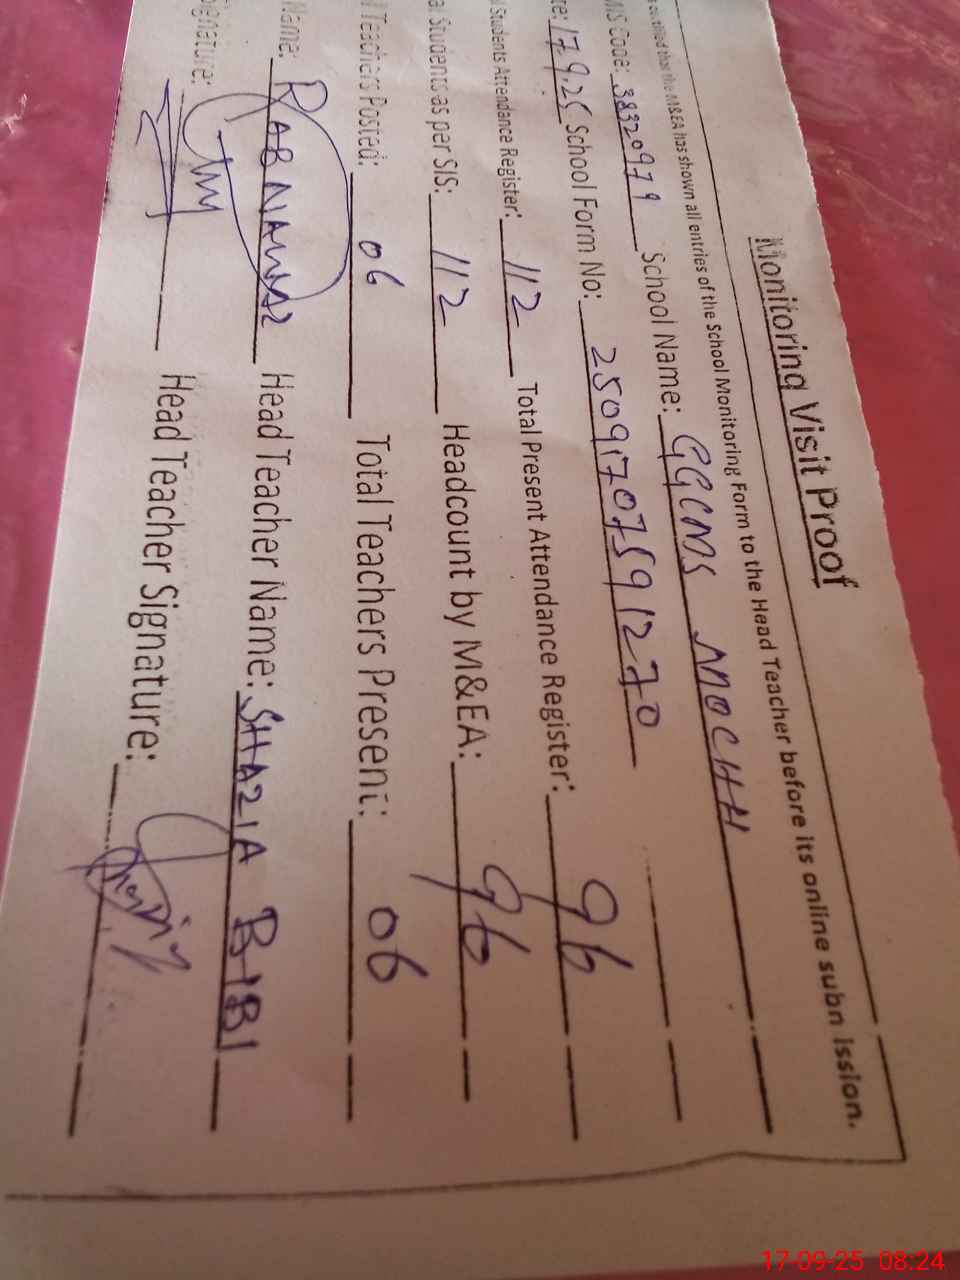 Monitoring Visit Proof
certified that the M&EA has shown all entries of the School Monitoring Form to the Head Teacher before its online subn ission.
MIS Code: 38320979 School Name: GGCMS MOCHH
te: 17.9.25 School Form No: 250917075912770
l Students Attendance Register: 112 Total Present Attendance Register: 96
a Students as per SIS: 112 Headcount by M&EA: 96
l Teachers Posted: 06 Total Teachers Present: 06
Name: RAB NAWAZ Head Teacher Name: SHAZIA BIBI
Signature: Head Teacher Signature:
17-09-25 08:24